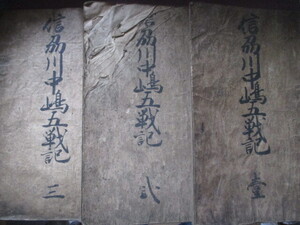 信㓛川中嶋五戦記 壹
信㓛川中嶋五戦記 弐
信㓛川中嶋五戦記 三